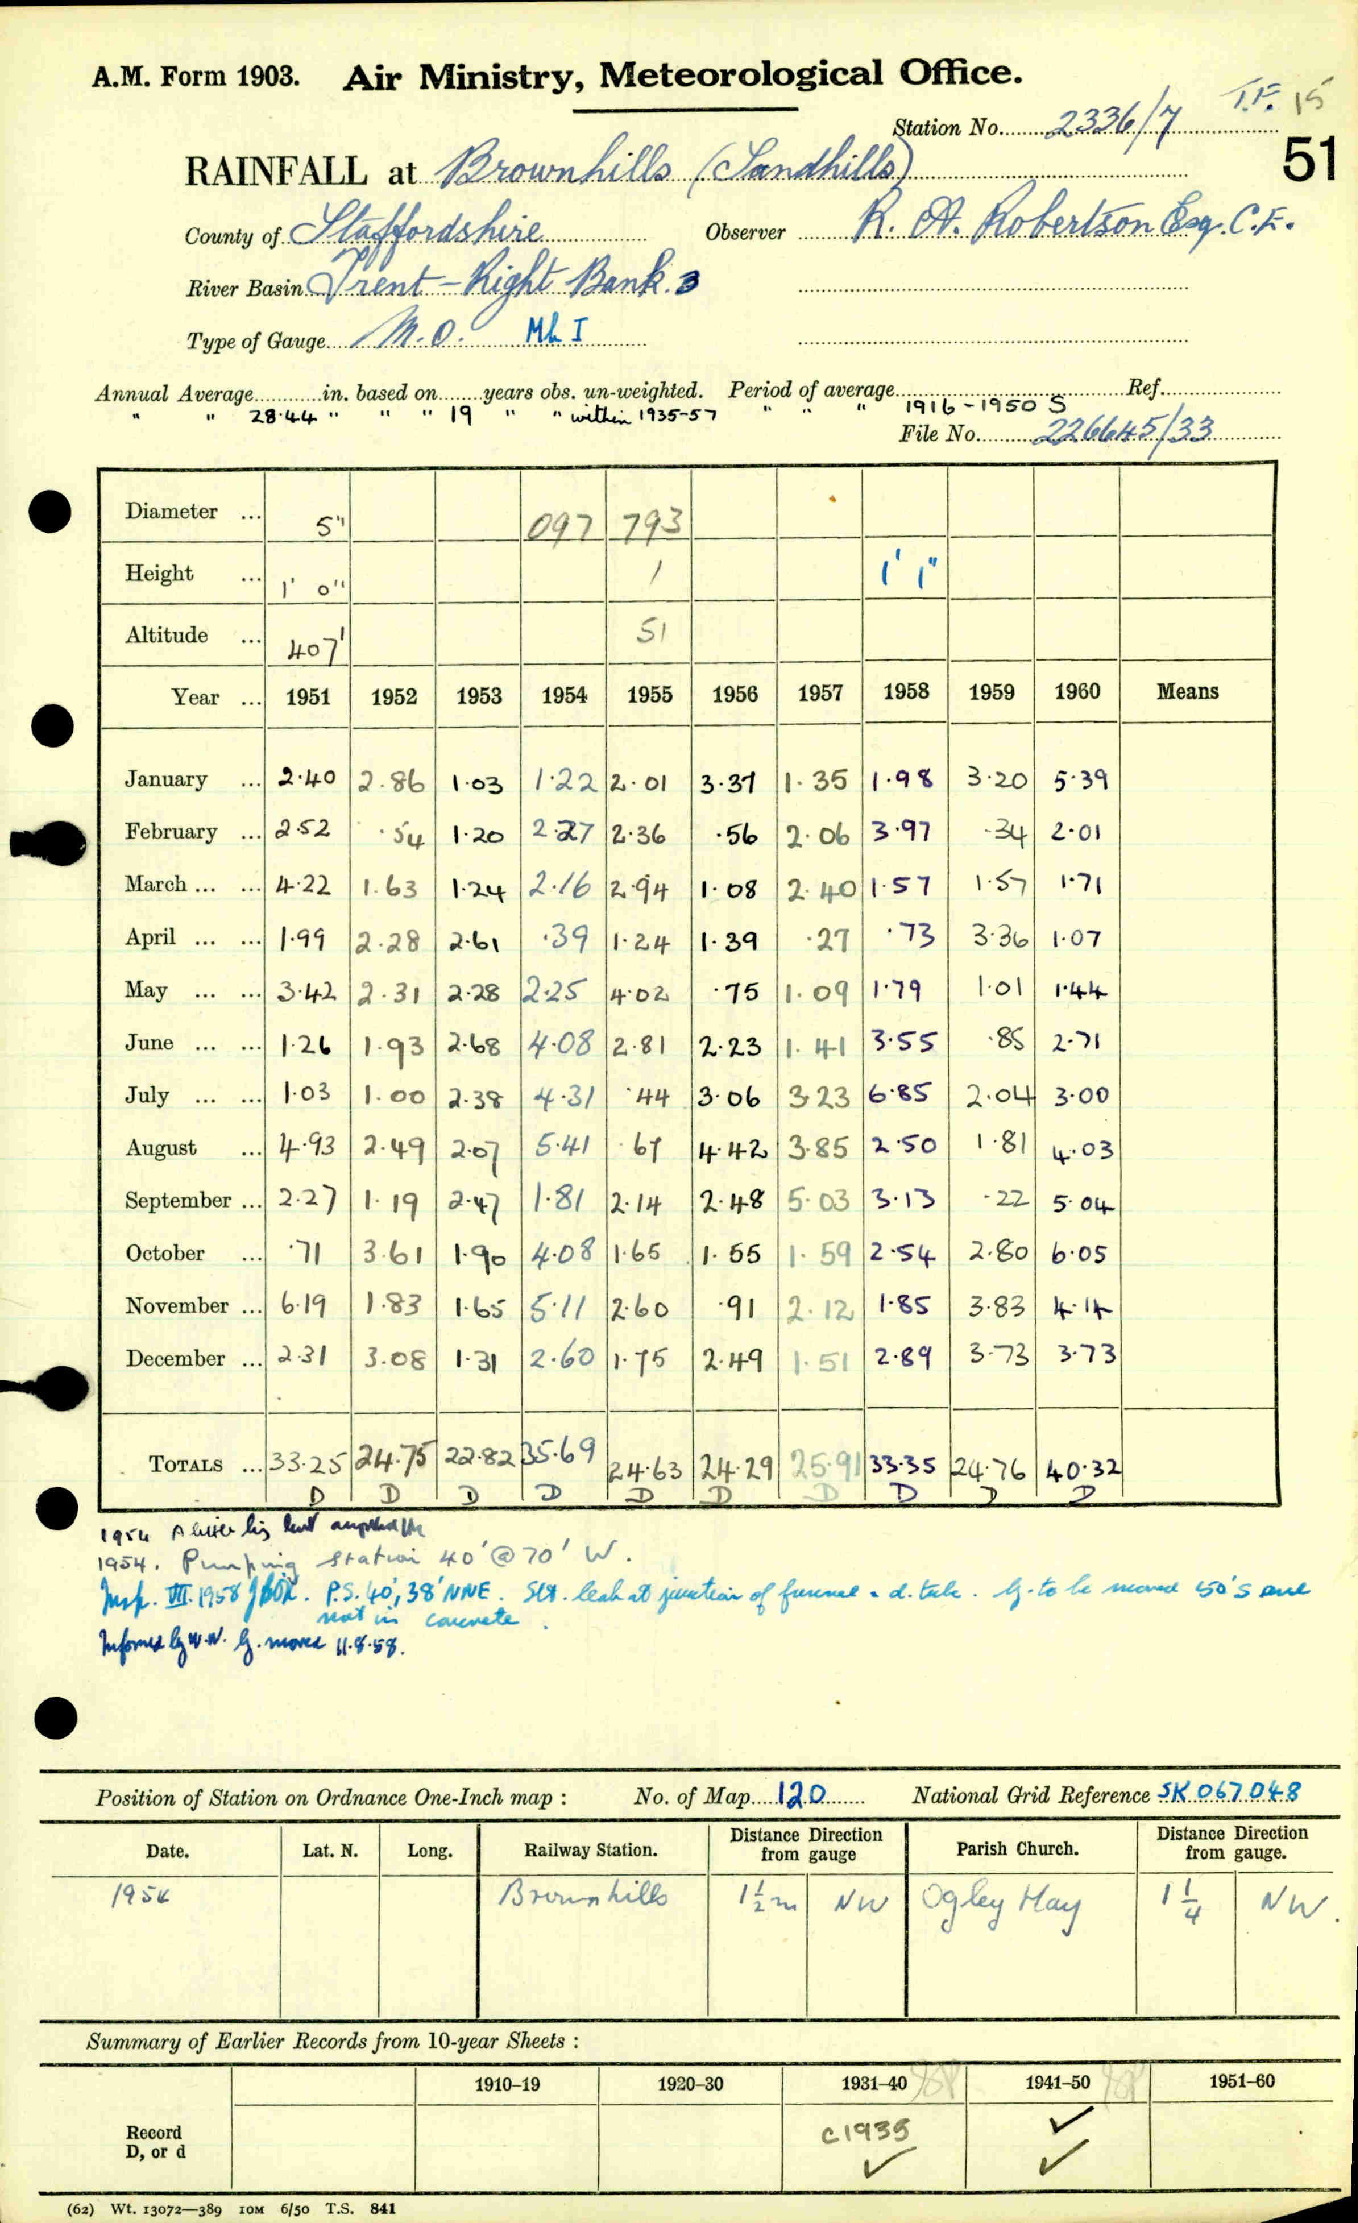 A.M. Form 1903. Air Ministry, Meteorological Office.
T.F. 15
Station No. 2336/7
51
RAINFALL at Brownhills (Sandhills)
County of Staffordshire Observer R. A. Robertson Esq. C.E.
River Basin Trent - Right Bank. 3
Type of Gauge M.O. Mk I
Annual Average in. based on years obs. un-weighted. Period of average Ref.
" " 28.44 " " " 19 " " within 1935-57 " " " 1916-1950 S
File No. 226645/33
Diameter ... 5" 097 793
Height ... 1' 0" 1 1' 1"
Altitude ... 407' 51
Year ... 1951 1952 1953 1954 1955 1956 1957 1958 1959 1960 Means
January ... 2.40 2.86 1.03 1.22 2.01 3.37 1.35 1.98 3.20 5.39
February ... 2.52 .54 1.20 2.27 2.36 .56 2.06 3.97 .34 2.01
March ... ... 4.22 1.63 1.24 2.16 2.94 1.08 2.40 1.57 1.57 1.71
April ... ... 1.99 2.28 2.61 .39 1.24 1.39 .27 .73 3.36 1.07
May ... ... 3.42 2.31 2.28 2.25 4.02 .75 1.09 1.79 1.01 1.44
June ... ... 1.26 1.93 2.68 4.08 2.81 2.23 1.41 3.55 .85 2.71
July ... ... 1.03 1.00 2.38 4.31 .44 3.06 3.23 6.85 2.04 3.00
August ... 4.93 2.49 2.07 5.41 .67 4.42 3.85 2.50 1.81 4.03
September ... 2.27 1.19 2.47 1.81 2.14 2.48 5.03 3.13 .22 5.04
October ... .71 3.61 1.90 4.08 1.65 1.55 1.59 2.54 2.80 6.05
November ... 6.19 1.83 1.65 5.11 2.60 .91 2.12 1.85 3.83 4.14
December ... 2.31 3.08 1.31 2.60 1.75 2.49 1.51 2.89 3.73 3.73
TOTALS ... 33.25 24.75 22.82 35.69 24.63 24.29 25.91 33.35 24.76 40.32
D D D D D D D D D D
1954
1954. Pumping station 40' @ 70' W.
Insp. VII. 1958 P.S. 40', 38' NNE. Slt. leak at junction of funnel & d. tube. G. to be moved 50' S and
set in concrete.
Informed by W.W. G. moved 11.8.58.
Position of Station on Ordnance One-Inch map : No. of Map 120 National Grid Reference SK 067048
Date. Lat. N. Long. Railway Station. Distance Direction from gauge Parish Church. Distance Direction from gauge.
1954 Brownhills 1 1/2 m NW Ogley Hay 1 1/4 NW.
Summary of Earlier Records from 10-year Sheets :
1910–19 1920–30 1931–40 1941–50 1951–60
Record c1935 ✓
D, or d ✓ ✓
(62) Wt. 13072—389 10M 6/50 T.S. 841